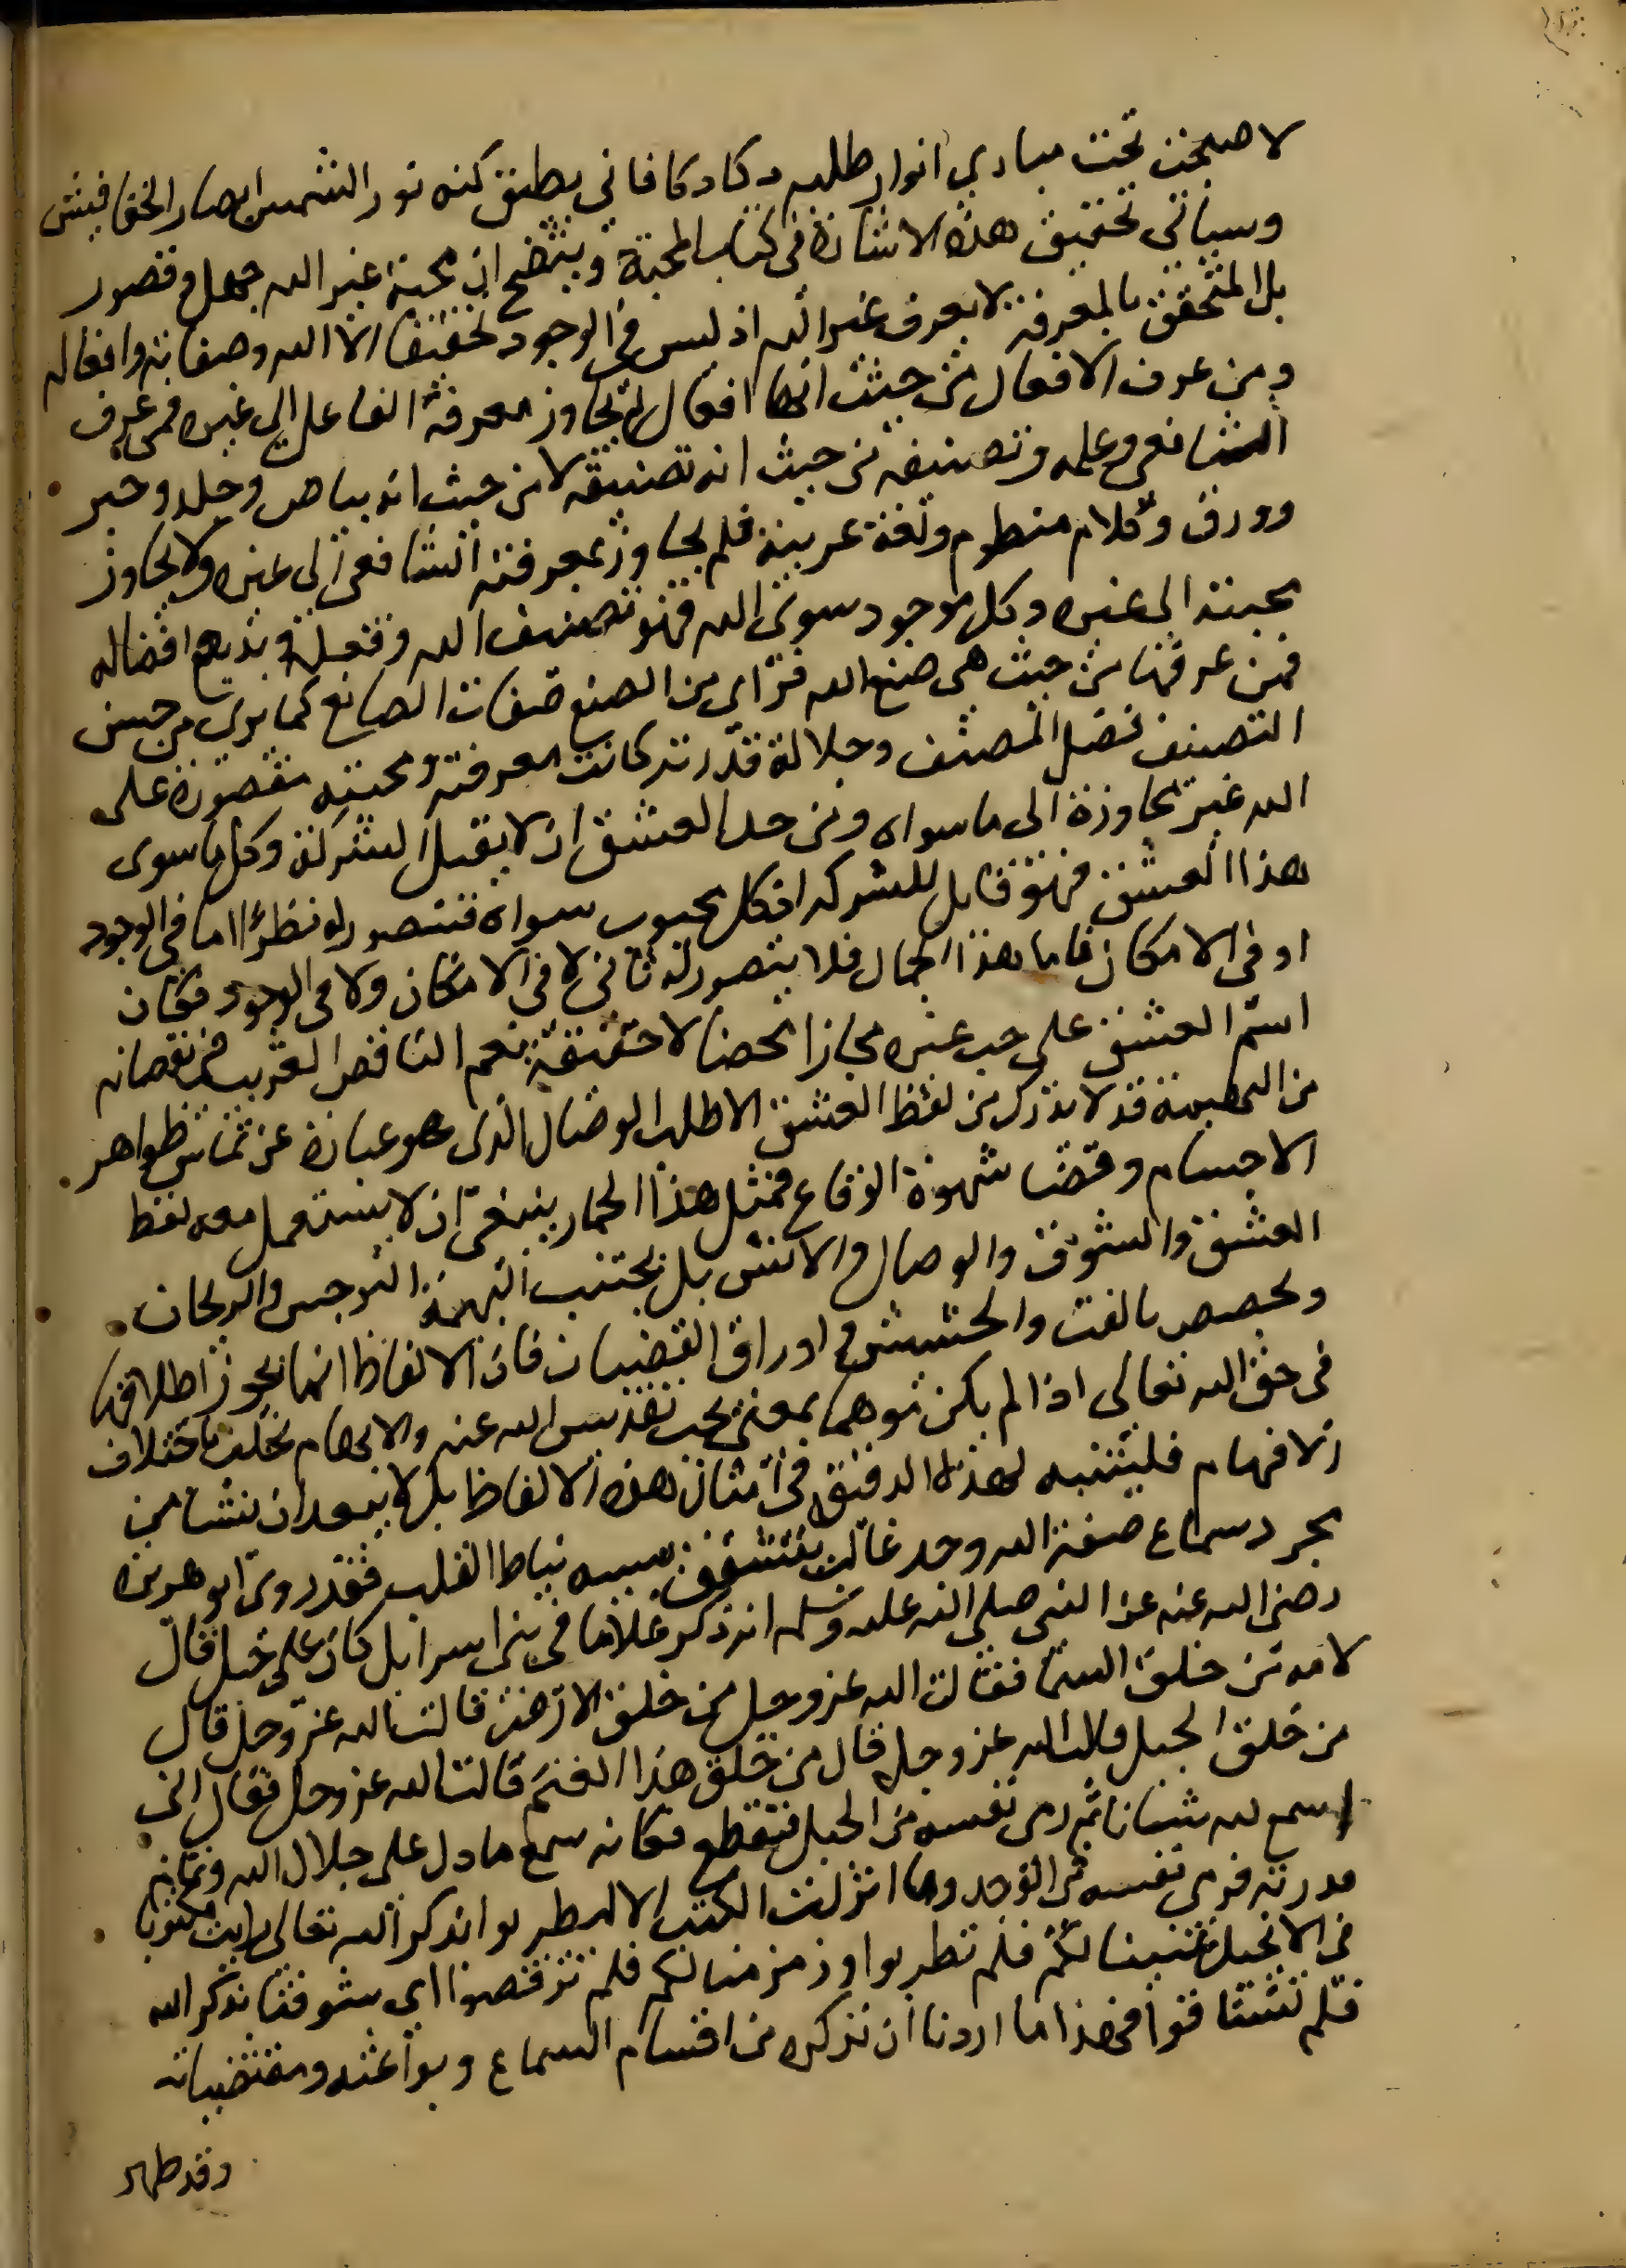 لاضمحلت تحت مبادي انوار طلبه دكا دكا فاني يطيق كنه نور الشمس ابصار الخفافيش
وسياتي تحقيق هذه الاشارة في كتاب المحبة ويتضح ان محبة غير الله جهل وقصور
بل المتحقق بالمعرفة لا يعرف غير الله اذ ليس في الوجود تحقيقا الا الله وصفاته وافعاله
ومن عرف الافعال من حيث انها افعال لم تجاوز معرفة الفاعل الى غيره فمن عرف
الشافعي وعلمه وتصنيفه من حيث انه تصنيفه لا من حيث انه بياض وجلد وحبر
وورق وكلام منظوم ولغة عربية فلم يجاوز بمعرفته الشافعي الى غيره ولا يجاوز
محبته الى غيره وكل موجود سوى الله فهو تصنيف الله وفعله وبديع افضاله
فمن عرفها من حيث هي صنع الله فراى من الصنع صفات الصانع كما يرى من حسن
التصنيف فضل المصنف وجلالة قدره كانت معرفته ومحبته مقصورة على
الله غير مجاوزة الى ما سواه ومن حد العشق ان لا يقبل الشركة وكل ما سوى
هذا العشق فهو قابل للشركة اذ كل محبوب سواه فتتصور له نظرا اما في الوجود
او في الامكان فاما هذا الجمال فلا يتصور له ثاني لا في الامكان ولا في الوجود فكان
اسم العشق على حب غيره مجازا محضا لا حقيقة نعم الناقص القريب في نقصانه
من البهيمة قد لا يدرك من لفظ العشق الا طلب الوصال الذي هو عبارة عن تماس ظواهر
الاجسام وقضا شهوة الوقاع فمثل هذا الحمار ينبغي ان لا يستعمل معه لفظ
العشق والشوق والوصال والانس بل يجتنب البهيمة النرجس والريحان
ويخصص بالقت والحشيش واوراق القضبان فان الالفاظ انما يجوز اطلاقها
في حق الله تعالى اذا لم يكن موهما بمعنى يجب تقديس الله عنه والايهام يختلف باختلاف
الافهام فليتنبه لهذه الدقيقة في امثال هذه الالفاظ بل لا يبعد ان ينشا من
مجرد سماع صفة الله وجد غالب يتشقق بسببه نياط القلب فقد روى ابو هريرة
رضي الله عنه عن النبي صلى الله عليه وسلم انه ذكر غلاما في بني اسرايل كان على جبل فقال
لامه من خلق السما فقالت الله عز وجل من خلق الارض قالت الله عز وجل قال
من خلق الجبل قالت الله عز وجل قال من خلق هذا الغنم قالت الله عز وجل فقال اني
اسمع لله شانا ثم رمى نفسه من الجبل فتقطع فكانه سمع ما دل على جلال الله وتمام
قدرته فرمى نفسه من الوجد وما انزلت الكتب الا ليطربوا بذكر الله تعالى رايت مكتوبا
في الانجيل غنينا لكم فلم تطربوا وزمزمنا لكم فلم ترقصوا اي شوقنا بذكر الله
فلم تشتاقوا فهذا ما اردنا ان نذكره من اقسام السماع وبواعثه ومقتضياته
وقد ظهر